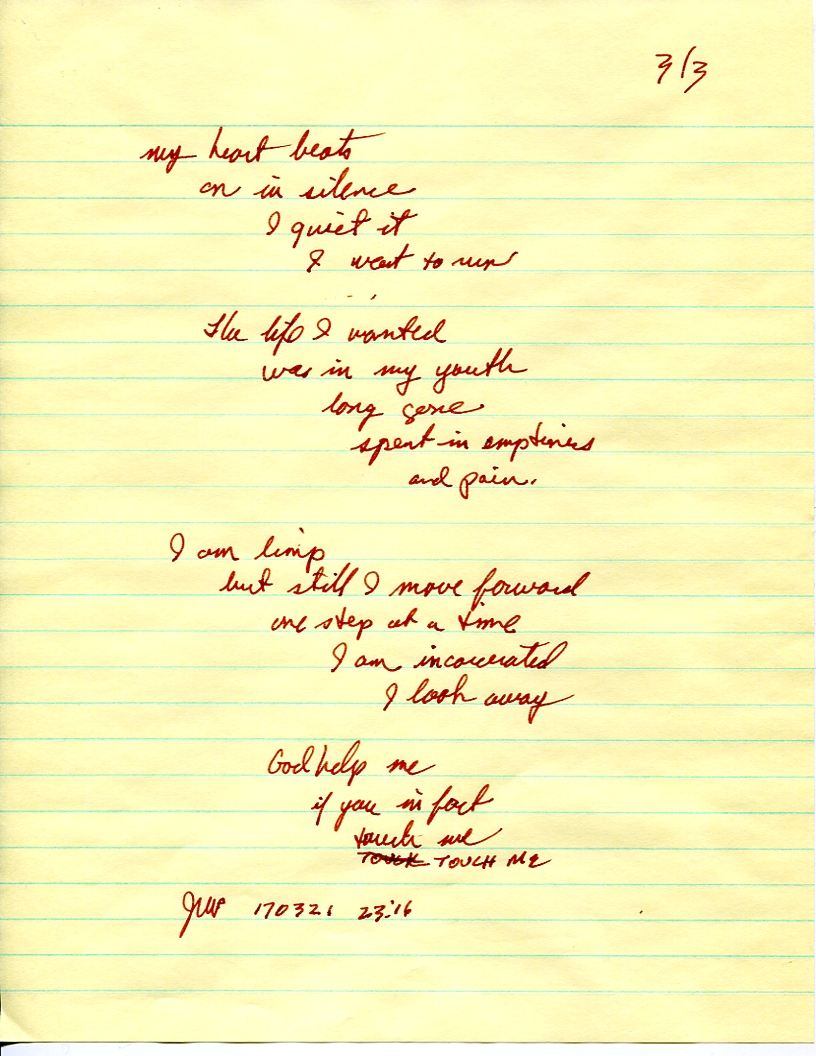 3/3
my heart beats
on in silence
I quiet it
I want to run
The life I wanted
was in my youth
long gone
spent in emptiness
and pain.
I am limp
but still I move forward
one step at a time
I am incarcerated
I look away
God help me
if you in fact
touch me
TOUCH ME
170321 23:16